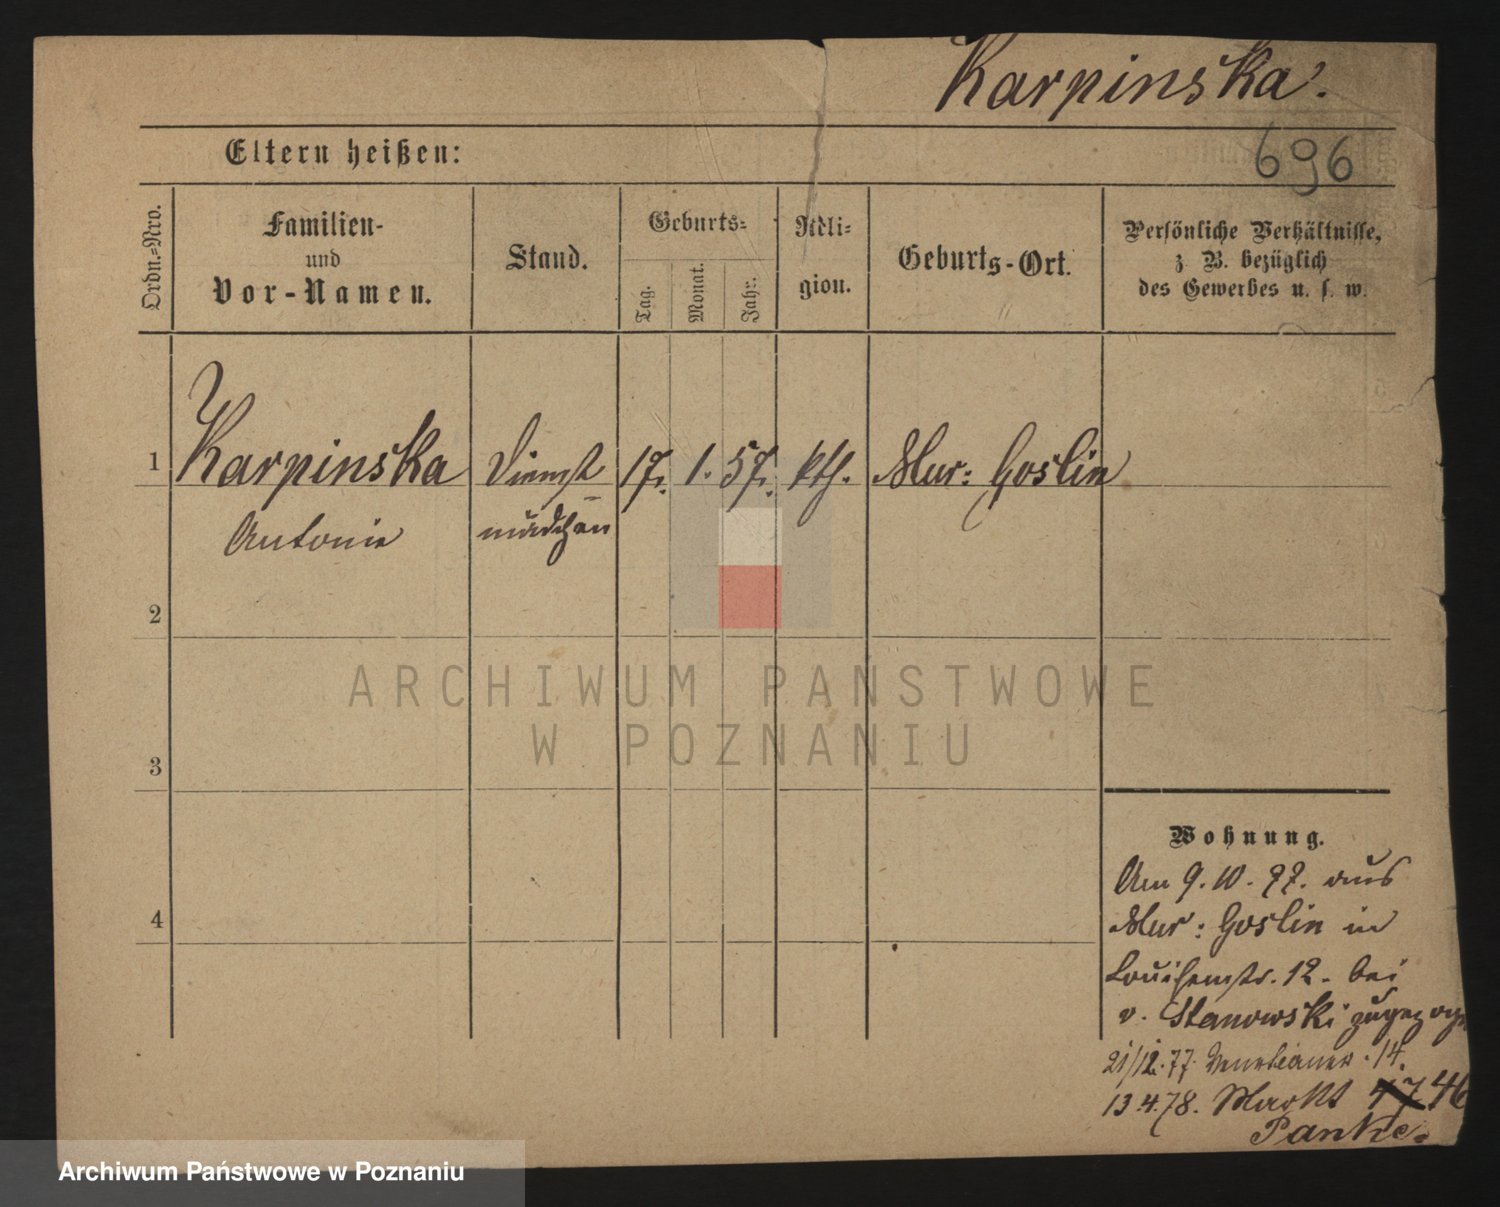 Karpinska.
696
Eltern heißen:
Ordn.=Nro.
Familien-
und
Vor-Namen.
Stand.
Geburts=
Tag.
Monat.
Jahr.
Reli=
gion.
Geburts-Ort.
Persönliche Verhältnisse,
z. B. bezüglich
des Gewerbes u. s. w.
1 Karpinska Dienst 17. 1. 57. kth. Mur: Goslin
Antonie mädchen
2
3
4
Wohnung.
Am 9. 10. 77. aus
Mur: Goslin in
Louisenstr. 12. bei
v. Stanowski
21/12.77. Venetianer. 14.
13.4.78. Markt 47 46
Panke.
ARCHIWUM PAŃSTWOWE
W POZNANIU
Archiwum Państwowe w Poznaniu